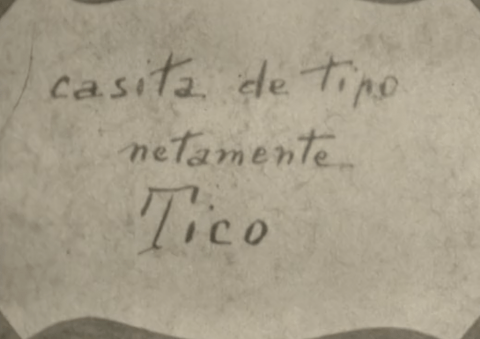 casita de tipo
netamente
Tico